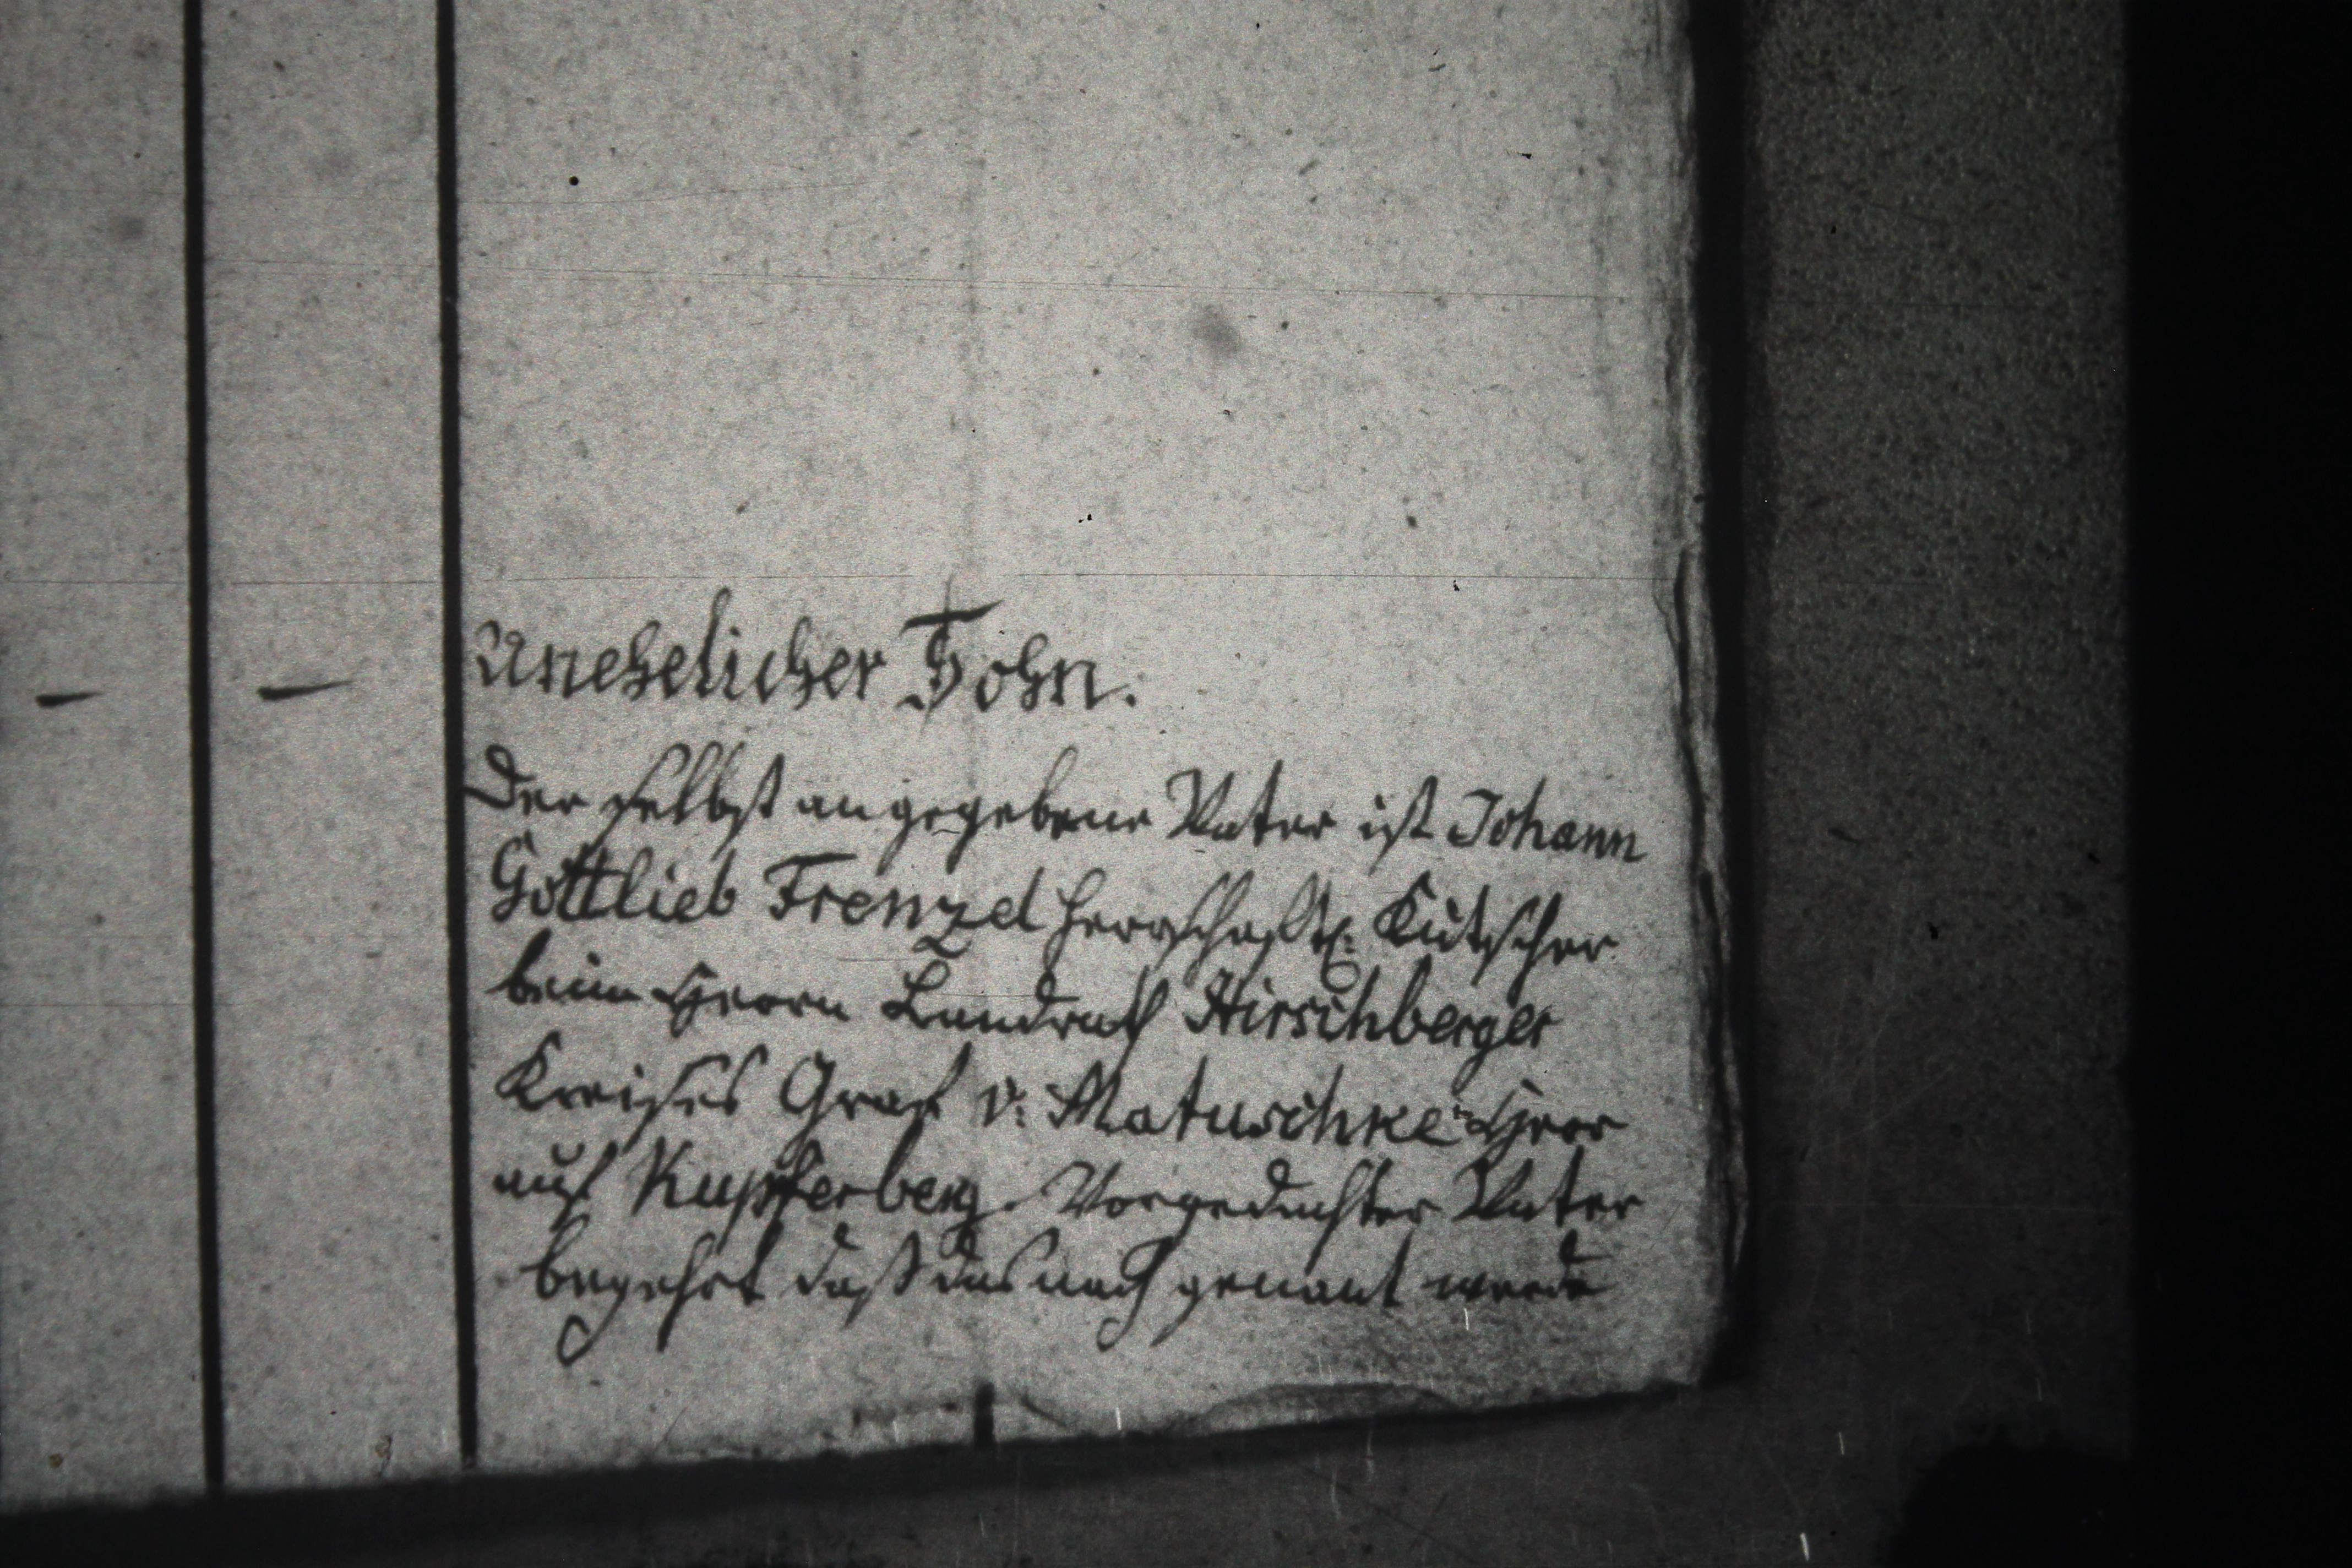 unehelicher Sohn.
Der selbst angegebene Vater ist Johann
Gottlieb Frenzel herrschaftl: Kutscher
beim Herrn Landrath Hirschberger
Kreises Graf v. Matuschke Herr
auf Kupferberg. Vorgedachter Vater
begehrt daß das nach genant werde